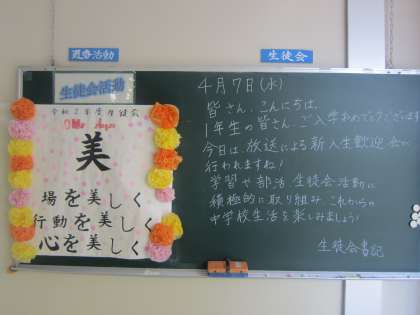 生徒会
生徒会活動
美
場を美しく
行動を美しく
心を美しく
4月7日(水)
皆さん、こんにちは。
1年生の皆さん、ご入学おめでとうございます
今日は、放送による新入生歓迎会が
行われますね!
学習や部活、生徒会活動に
積極的に取り組み、これからの
中学校生活を楽しみましょう!
生徒会書記